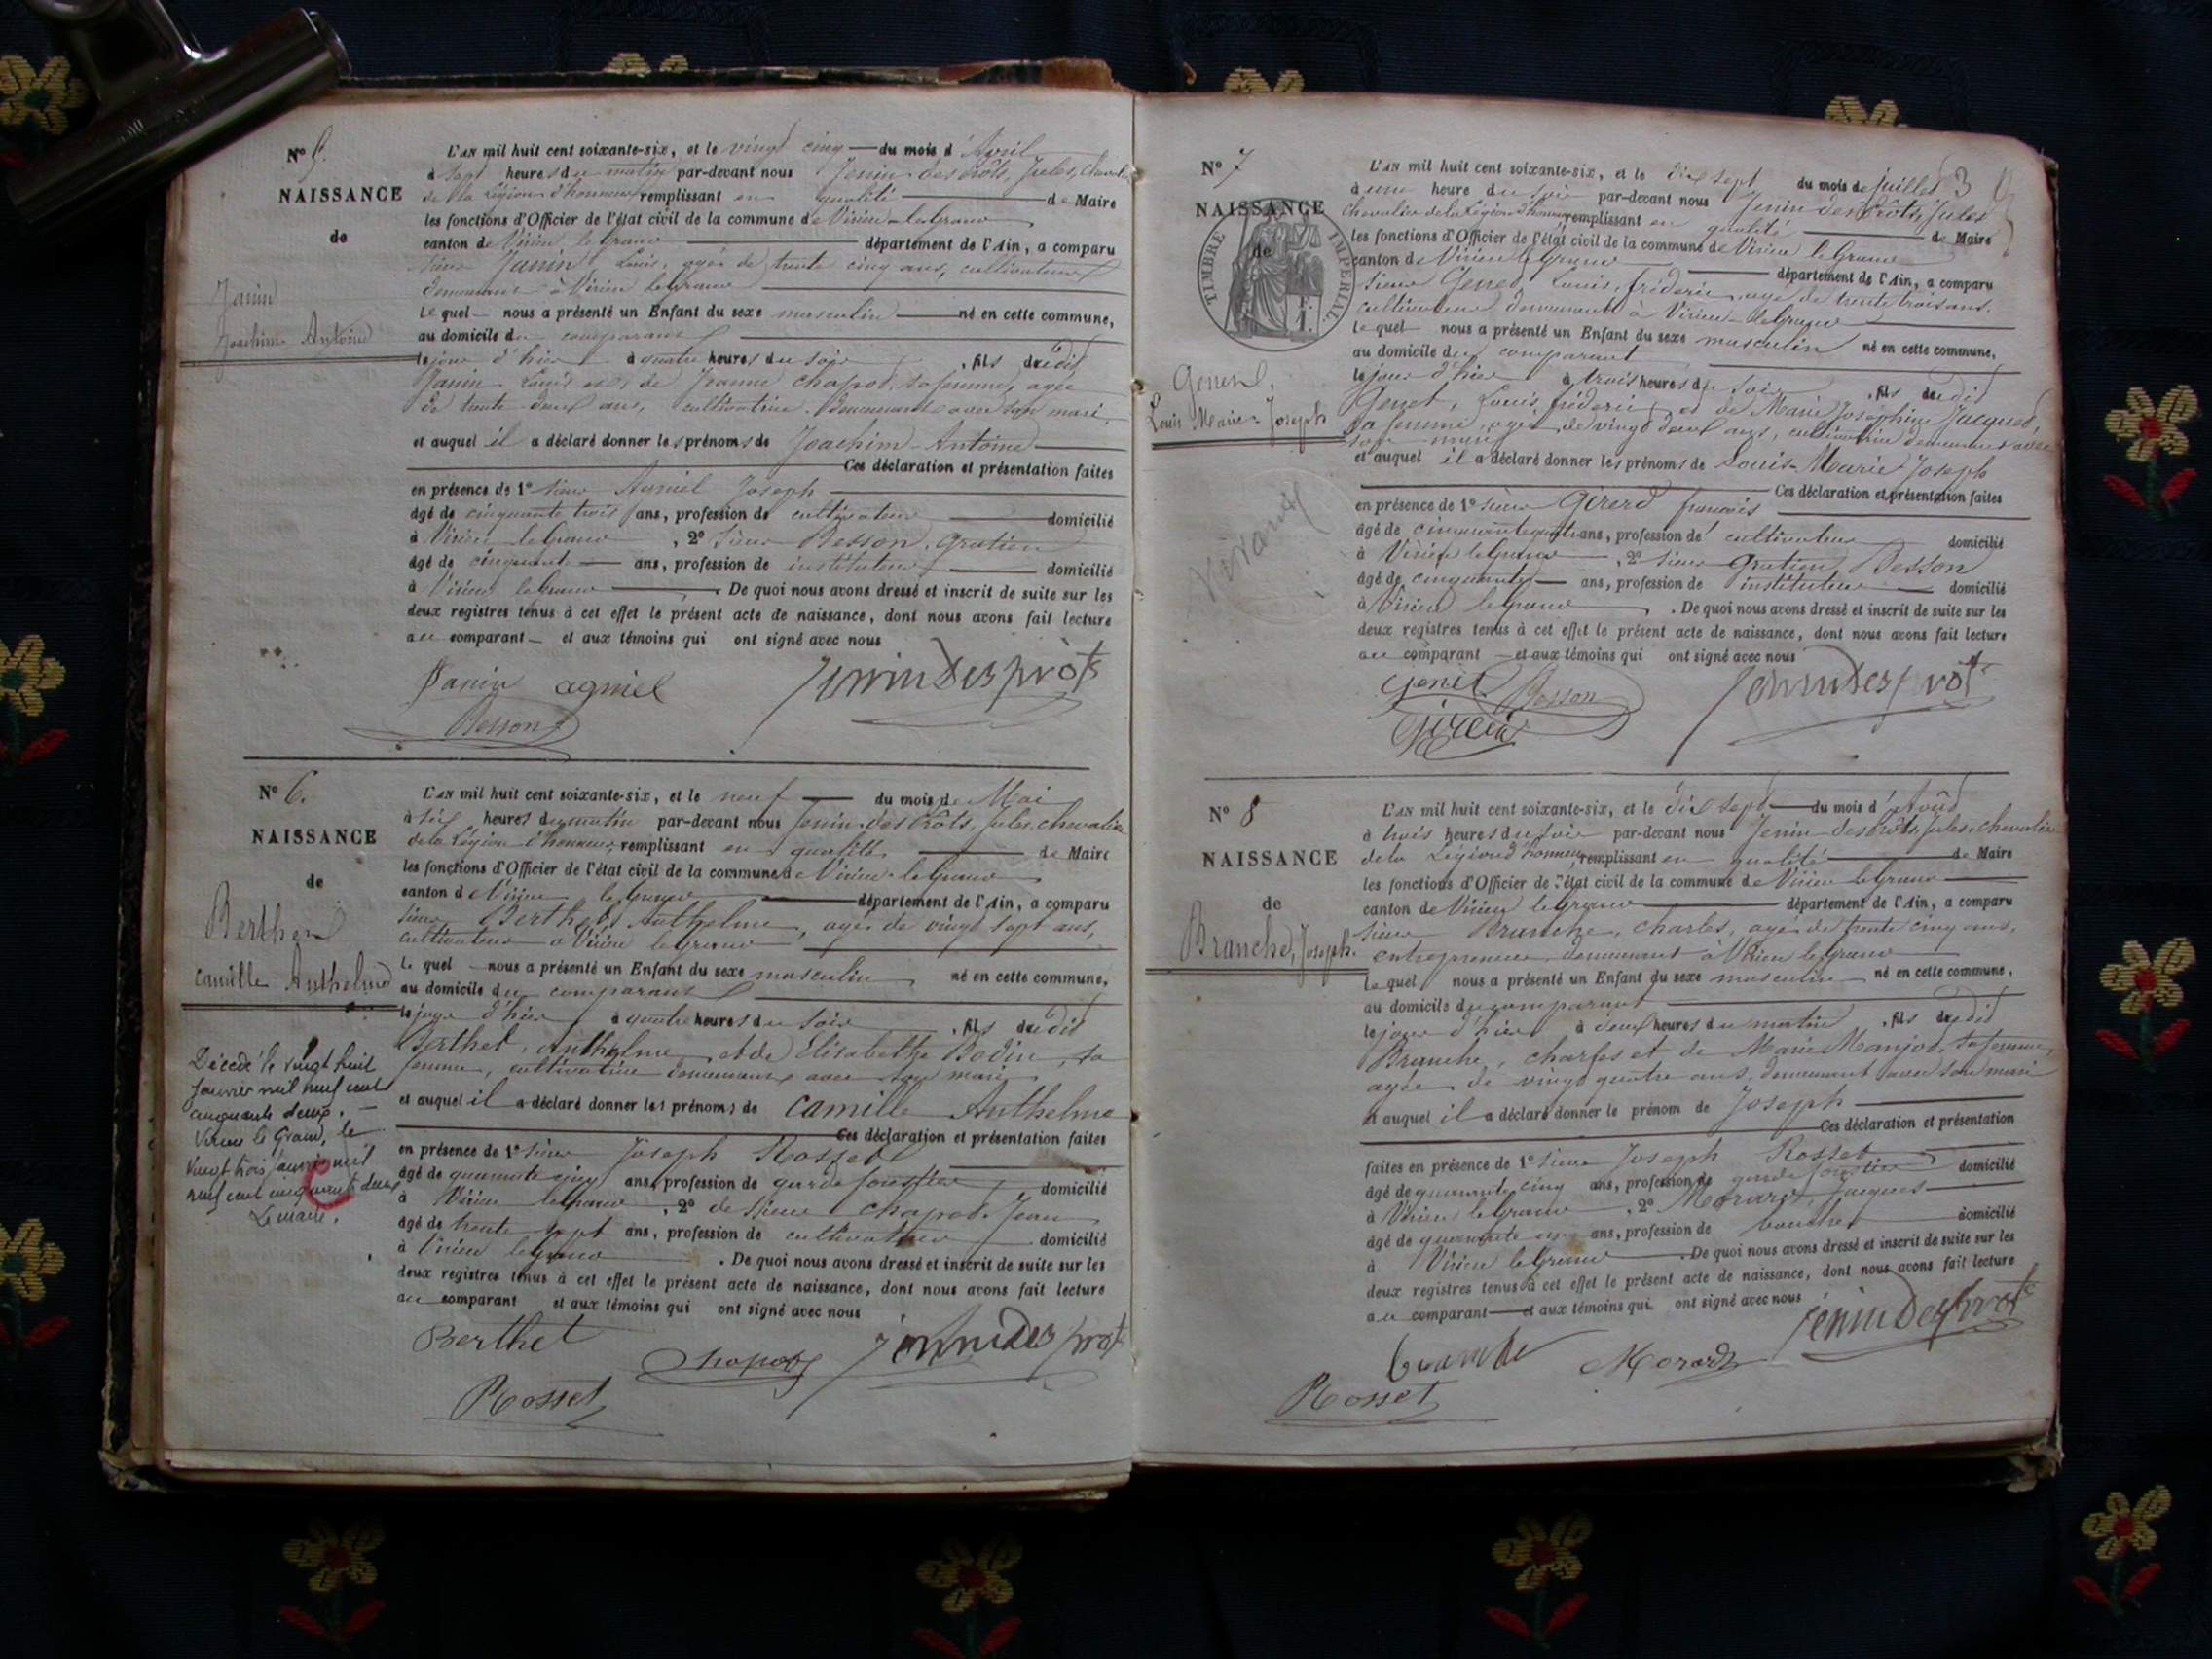 N° 5.
NAISSANCE
de
Janin
Joachim Antoine
L'an mil huit cent soixante-six, et le vingt cinq du mois d'Avril
à sept heures du matin par-devant nous Jenin des Prôts, Jules, Chevalier
de la Légion d'honneur remplissant en qualité de Maire
les fonctions d'Officier de l'état civil de la commune de Virieu-le-Grand
canton de Virieu le Grand département de l'Ain, a comparu
sieur Janin Louis, agé de trente cinq ans, cultivateur
demeurant à Virieu le Grand
Lequel nous a présenté un Enfant du sexe masculin né en cette commune,
au domicile du comparant
le jour d'hier à quatre heures du soir, fils dudit
Janin Louis et de Jeanne Chapot, sa femme, agée
de trente deux ans, cultivatrice, demeurant avec son mari
et auquel il a déclaré donner les prénoms de Joachim-Antoine
Ces déclaration et présentation faites
en présence de 1° sieur Joseph
âgé de cinquante trois ans, profession de cultivateur domicilié
à Virieu le Grand, 2° sieur Besson, Gratien
âgé de cinquante ans, profession de instituteur domicilié
à Virieu le Grand. De quoi nous avons dressé et inscrit de suite sur les
deux registres tenus à cet effet le présent acte de naissance, dont nous avons fait lecture
au comparant et aux témoins qui ont signé avec nous
Janin agniel Jenindesprôts
Besson
N° 6.
NAISSANCE
de
Berthet
Camille Anthelme
Décédé le vingt huit
janvier mil neuf cent
cinquante deux.
Virieu le Grand, le
vingt trois janvier mil
neuf cent cinquante deux
Le maire.
L'an mil huit cent soixante-six, et le neuf du mois de Mai
à six heures du matin par-devant nous Jenin des Prôts, Jules, chevalier
de la Légion d'honneur, remplissant en qualité de Maire
les fonctions d'Officier de l'état civil de la commune de Virieu-le-Grand
canton de Virieu le Grand département de l'Ain, a comparu
sieur Berthet, Anthelme, agé de vingt sept ans,
cultivateur à Virieu le Grand
Lequel nous a présenté un Enfant du sexe masculin né en cette commune,
au domicile du comparant
le jour d'hier à quatre heures du soir, fils dudit
Berthet, Anthelme et de Elisabeth Bodin, sa
femme, cultivatrice demeurant avec son mari
et auquel il a déclaré donner les prénoms de Camille Anthelme
Ces déclaration et présentation faites
en présence de 1° sieur Joseph Rosset
âgé de quarante cinq ans, profession de garde forestier domicilié
à Virieu le Grand, 2° de sieur Chapot Jean
âgé de trente sept ans, profession de cultivateur domicilié
à Virieu le Grand. De quoi nous avons dressé et inscrit de suite sur les
deux registres tenus à cet effet le présent acte de naissance, dont nous avons fait lecture
au comparant et aux témoins qui ont signé avec nous
Berthet Chapot Jenindesprôts
Rosset
N° 7
NAISSANCE
de
TIMBRE IMPERIAL
Genet,
Louis Marie-Joseph
L'an mil huit cent soixante-six, et le dix sept du mois de juillet 3
à une heure du soir par-devant nous Jenin des Prôts, Jules
Chevalier de la Légion d'honneur remplissant en qualité de Maire
les fonctions d'Officier de l'état civil de la commune de Virieu le Grand
canton de Virieu le Grand département de l'Ain, a comparu
sieur Genet, Louis, fréderic, agé de trente trois ans,
cultivateur demeurant à Virieu-le-Grand
Lequel nous a présenté un Enfant du sexe masculin né en cette commune,
au domicile du comparant
le jour d'hier à trois heures du soir, fils dudit
Genet, Louis, fréderic, et de Marie Joséphine Jacquet,
sa femme, agée de vingt deux ans, cultivatrice demeurant avec
son mari
et auquel il a déclaré donner les prénoms de Louis-Marie Joseph
Ces déclaration et présentation faites
en présence de 1° sieur Girerd françois
âgé de ans, profession de cultivateur domicilié
à Virieu le Grand, 2° sieur Gratien Besson
âgé de cinquante ans, profession de instituteur domicilié
à Virieu le Grand. De quoi nous avons dressé et inscrit de suite sur les
deux registres tenus à cet effet le présent acte de naissance, dont nous avons fait lecture
au comparant et aux témoins qui ont signé avec nous
Genet Besson Jenindesprôts
Girerd
N° 8
NAISSANCE
de
Branche, Joseph.
L'an mil huit cent soixante-six, et le dix sept du mois d'Août
à trois heures du soir par-devant nous Jenin des Prôts, Jules, Chevalier
de la Légion d'honneur remplissant en qualité de Maire
les fonctions d'Officier de l'état civil de la commune de Virieu le Grand
canton de Virieu le Grand département de l'Ain, a comparu
sieur Branche, Charles, agé de trente cinq ans,
entrepreneur demeurant à Virieu le Grand
Lequel nous a présenté un Enfant du sexe masculin né en cette commune,
au domicile du comparant
le jour d'hier à deux heures du matin, fils dudit
Branche, Charles et de Marie Manjot, sa femme,
agée de vingt quatre ans, demeurant avec son mari
et auquel il a déclaré donner le prénom de Joseph
Ces déclaration et présentation
faites en présence de 1° sieur Joseph Rosset
âgé de quarante cinq ans, profession de garde forestier domicilié
à Virieu le Grand, 2° Morard, Jacques
âgé de quarante ans, profession de boucher domicilié
à Virieu le Grand. De quoi nous avons dressé et inscrit de suite sur les
deux registres tenus à cet effet le présent acte de naissance, dont nous avons fait lecture
au comparant et aux témoins qui ont signé avec nous
Branche Morard Jenindesprôts
Rosset